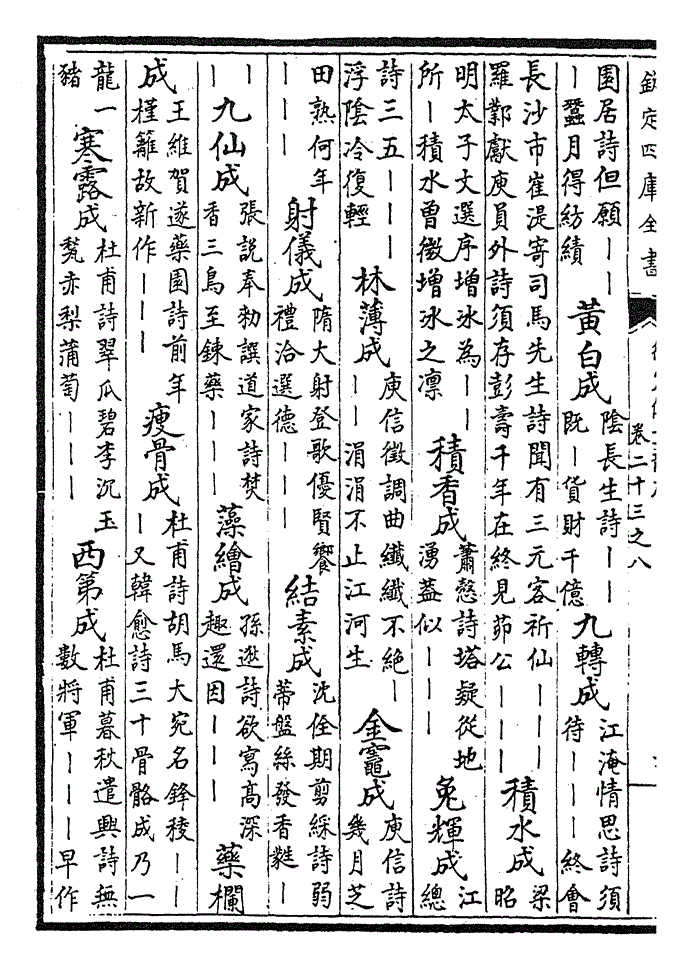 欽定四庫全書
卷二十三之八
園居詩但願丨丨
丨蠶月得紡績
黃白成
陰長生詩丨丨
既丨貨財千億
九轉成
江淹情思詩須
待丨丨丨終會
長沙市崔湜寄司馬先生詩聞有三元客祈仙丨丨丨
羅鄴獻庾員外詩須存彭壽千年在終見茆公丨丨丨
積水成
梁
昭
明太子文選序增冰為丨丨
所丨積水曾微增冰之凜
積香成
蕭慤詩塔疑從地
湧葢似丨丨丨
兔輝成
江
總
詩三五丨丨丨
浮陰冷復輕
林薄成
庾信徵調曲纖纖不絶丨
丨丨涓涓不止江河生
金竈成
庾信詩
幾月芝
田熟何年
丨丨丨
射儀成
隋大射登歌優賢饗
禮洽選德丨丨丨
結素成
沈佺期剪綵詩弱
蒂盤絲發香蕤丨
丨
丨
九仙成
張説奉勅譔道家詩焚
香三鳥至鍊藥丨丨丨
藻繪成
孫逖詩欲寫髙深
趣還因丨丨丨
藥欄
成
王維賀遂藥園詩前年
槿籬故新作丨丨丨
瘦骨成
杜甫詩胡馬大宛名鋒稜丨丨
丨又韓愈詩三十骨骼成乃一
龍一
豬
寒露成
杜甫詩翠瓜碧李沉玉
甃赤梨蒲萄丨丨丨
西第成
杜甫暮秋遣興詩無
數將軍丨丨丨早作